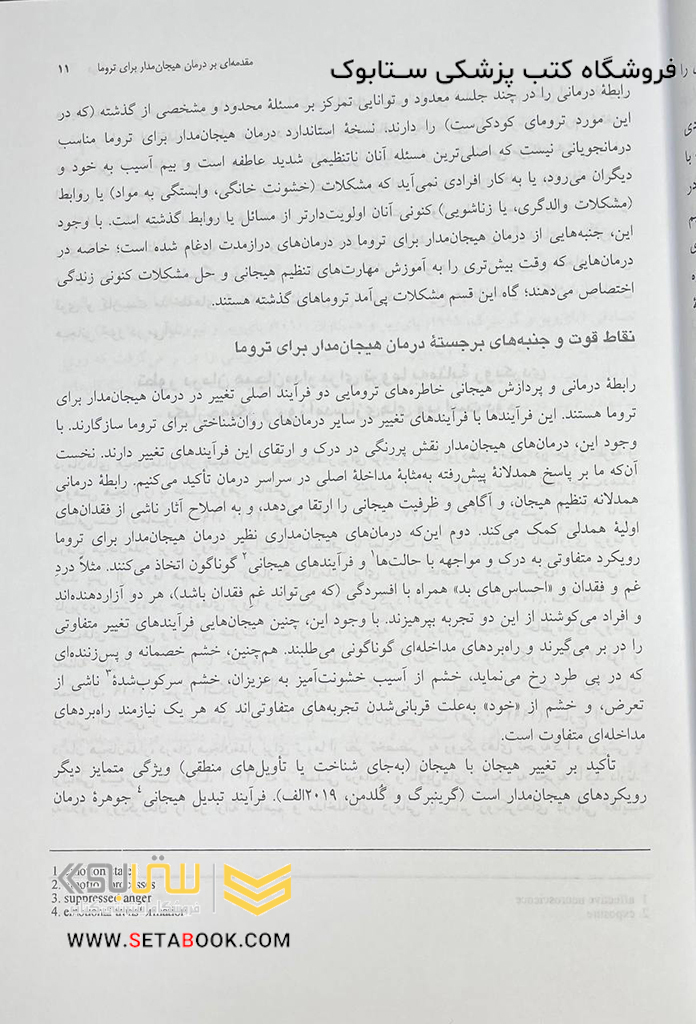 مقدمه‌ای بر درمان هیجان‌مدار برای تروما ۱۱
فروشگاه کتب پزشکی ستابوک
رابطهٔ درمانی را در چند جلسه معدود و توانایی تمرکز بر مسئلهٔ محدود و مشخصی از گذشته (که در
این مورد ترومای کودکی‌ست) را دارند. نسخهٔ استاندارد درمان هیجان‌مدار برای تروما مناسب
درمانجویانی نیست که اصلی‌ترین مسئله آنان ناتنظیمی شدید عاطفه است و بیم آسیب به خود و
دیگران می‌رود، یا به کار افرادی نمی‌آید که مشکلات (خشونت خانگی، وابستگی به مواد) یا روابط
(مشکلات والدگری، یا زناشویی) کنونی آنان اولویت‌دارتر از مسائل یا روابط گذشته است. با وجود
این، جنبه‌هایی از درمان هیجان‌مدار برای تروما در درمان‌های درازمدت ادغام شده است؛ خاصه در
درمان‌هایی که وقت بیش‌تری را به آموزش مهارت‌های تنظیم هیجانی و حل مشکلات کنونی زندگی
اختصاص می‌دهند؛ گاه این قسم مشکلات پی‌آمد تروماهای گذشته هستند.
نقاط قوت و جنبه‌های برجستهٔ درمان هیجان‌مدار برای تروما
رابطهٔ درمانی و پردازش هیجانی خاطره‌های ترومایی دو فرآیند اصلی تغییر در درمان هیجان‌مدار برای
تروما هستند. این فرآیندها با فرآیندهای تغییر در سایر درمان‌های روان‌شناختی برای تروما سازگارند. با
وجود این، درمان‌های هیجان‌مدار نقش پررنگی در درک و ارتقای این فرآیندهای تغییر دارند. نخست
آن‌که ما بر پاسخ همدلانهٔ پیش‌رفته به‌مثابهٔ مداخلهٔ اصلی در سراسر درمان تأکید می‌کنیم. رابطهٔ درمانی
همدلانه تنظیم هیجان، و آگاهی و ظرفیت هیجانی را ارتقا می‌دهد، و به اصلاح آثار ناشی از فقدان‌های
اولیهٔ همدلی کمک می‌کند. دوم این‌که درمان‌های هیجان‌مداری نظیر درمان هیجان‌مدار برای تروما
رویکرد متفاوتی به درک و مواجهه با حالت‌ها۱ و فرآیندهای هیجانی۲ گوناگون اتخاذ می‌کنند. مثلاً دردِ
غم و فقدان و «احساس‌های بد» همراه با افسردگی (که می‌تواند غمِ فقدان باشد)، هر دو آزاردهنده‌اند
و افراد می‌کوشند از این دو تجربه بپرهیزند. با وجود این، چنین هیجان‌هایی فرآیندهای تغییر متفاوتی
را در بر می‌گیرند و راه‌بردهای مداخله‌ای گوناگونی می‌طلبند. هم‌چنین، خشم خصمانه و پس‌زننده‌ای
که در پی طرد رخ می‌نماید، خشم از آسیب خشونت‌آمیز به عزیزان، خشم سرکوب‌شدهٔ۳ ناشی از
تعرض، و خشم از «خود» به‌علت قربانی‌شدن تجربه‌های متفاوتی‌اند که هر یک نیازمند راه‌بردهای
مداخله‌ای متفاوت است.
تأکید بر تغییر هیجان با هیجان (به‌جای شناخت یا تأویل‌های منطقی) ویژگی متمایز دیگر
رویکردهای هیجان‌مدار است (گرینبرگ و گُلدمن، ۲۰۱۹الف). فرآیند تبدیل هیجانی۴ جوهرهٔ درمان
1. emotion state
2. emotion processes
3. suppressed anger
4. emotional transformation
ستابوک
WWW.SETABOOK.COM